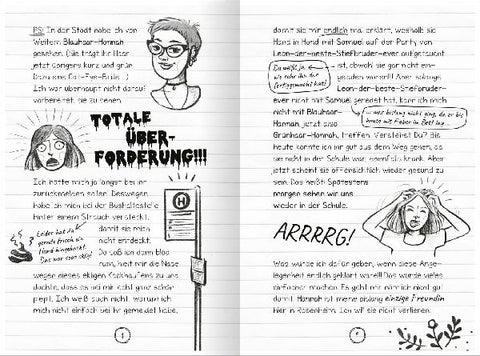 PS: In der Stadt habe ich von
Weitem Blauhaar-Hannah
gesehen. (Sie trägt ihr Haar
jetzt übrigens kurz und grün.
Dazu eine Cat-Eye-Brille...)
Ich war überhaupt nicht darauf
vorbereitet, sie zu sehen.
TOTALE
ÜBER-
FORDERUNG!!!
Ich hätte mich ja längst bei ihr
zurückmelden sollen. Deswegen
habe ich mich bei der Bushaltestelle
hinter einem Strauch versteckt,
Leider hat da
gerade frisch ein
Hund hingekackt.
Das war sooo eklig!
damit sie mich
nicht entdeckt.
Da saß ich dann blöd
rum, hielt mir die Nase
wegen dieses ekligen Kackhaufens zu und
dachte, dass es bei mir echt ganz schön
piept. Ich weiß auch nicht, warum ich
mich nicht einfach bei ihr gemeldet habe,
H
damit sie mir endlich mal erklärt, weshalb sie
Hand in Hand mit Samuel auf der Party von
Leon-der-beste-Stiefbruder-ever aufgetaucht
ist, obwohl sie gar nicht ein-
geladen waren!! Aber solange
Du weißt ja,
wie sehr ihn das
fertiggemacht hat!
Leon-der-beste-Stiefbruder-
ever nicht mit Samuel geredet hat, kann ich mich
nicht mit Blauhaar-
Hannah, jetzt also
... was bislang nicht ging, da er bis
heute mit Fieber im Bett lag ...
Grünhaar-Hannah, treffen. Verstehst Du? Bis
heute konnte ich ihr gut aus dem Weg gehen, da
sie nicht in der Schule war, ebenfalls krank. Aber
jetzt scheint sie offensichtlich wieder gesund zu
sein. Das heißt: Spätestens
morgen sehen wir uns
wieder in der Schule.
ARRRRG!
Was würde ich dafür geben, wenn diese Ange-
legenheit endlich geklärt wäre!! Das würde vieles
einfacher machen. Es geht mir nämlich nicht gut
damit. Hannah ist meine bislang einzige Freundin
hier in Rosenheim. Ich will sie nicht verlieren.